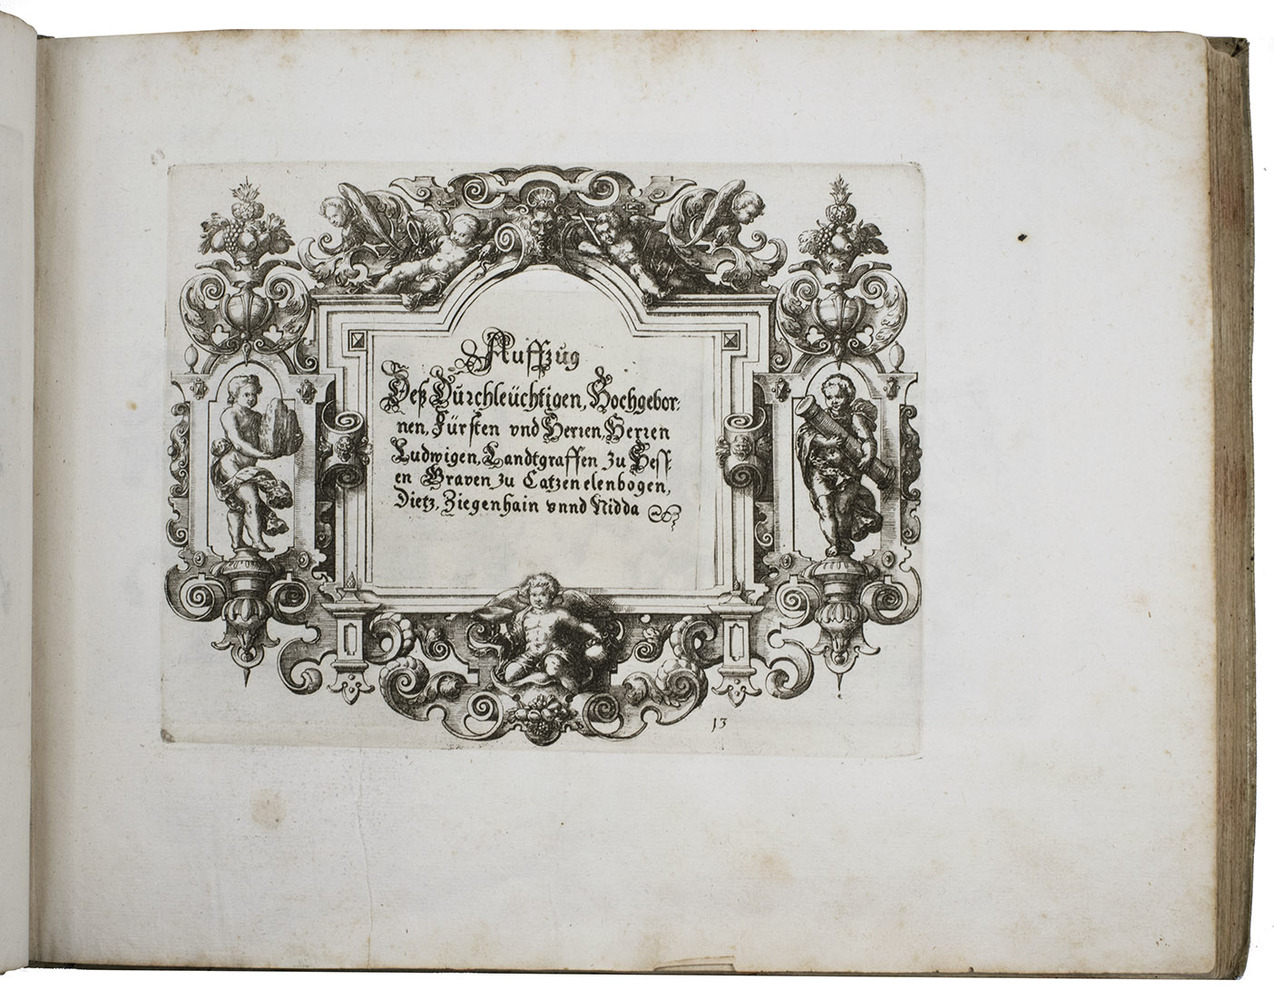 Auffzug
Deß Durchleüchtigen, Hochgebor:
nen, Fürsten vnd Herren, Herren
Ludwigen, Landtgraffen zu Hess:
en Graven zu Catzen elenbogen,
Dietz, Ziegenhain vnnd Nidda
13